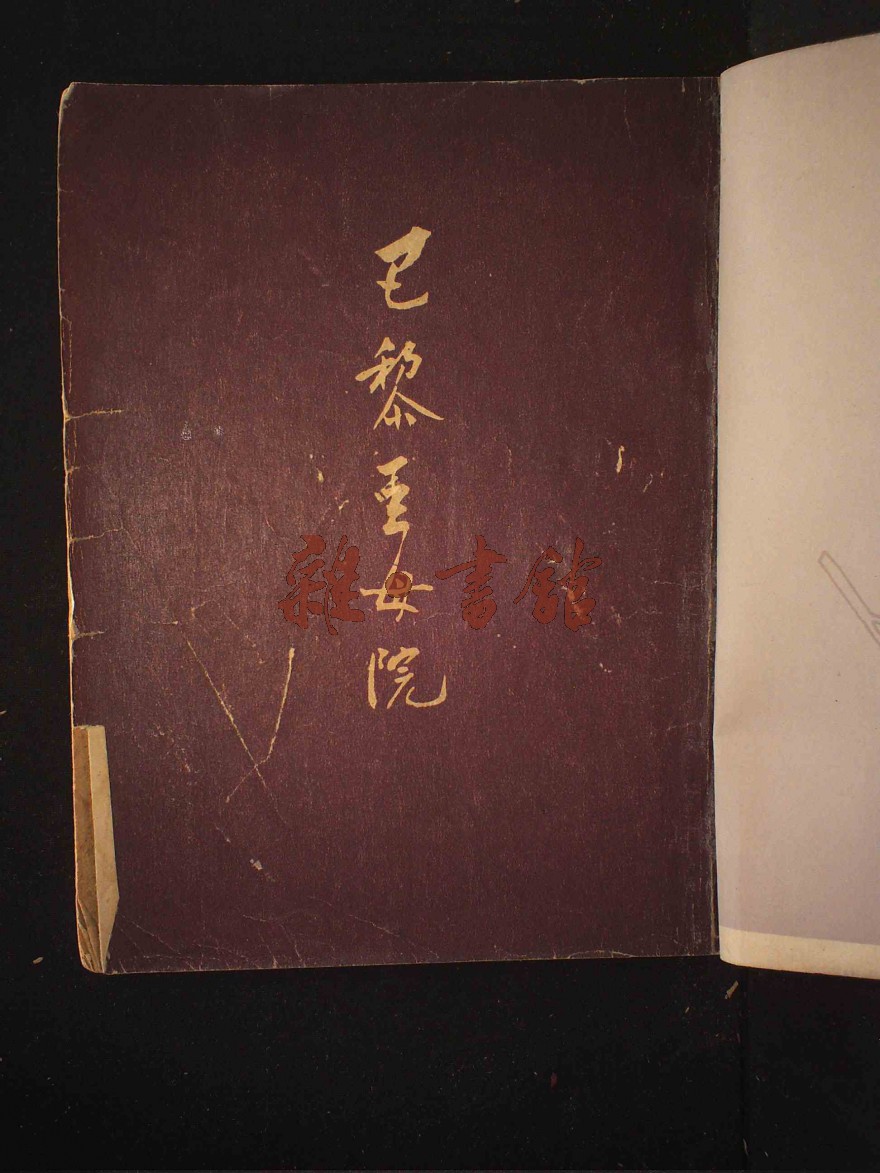 巴黎圣母院
雜書館